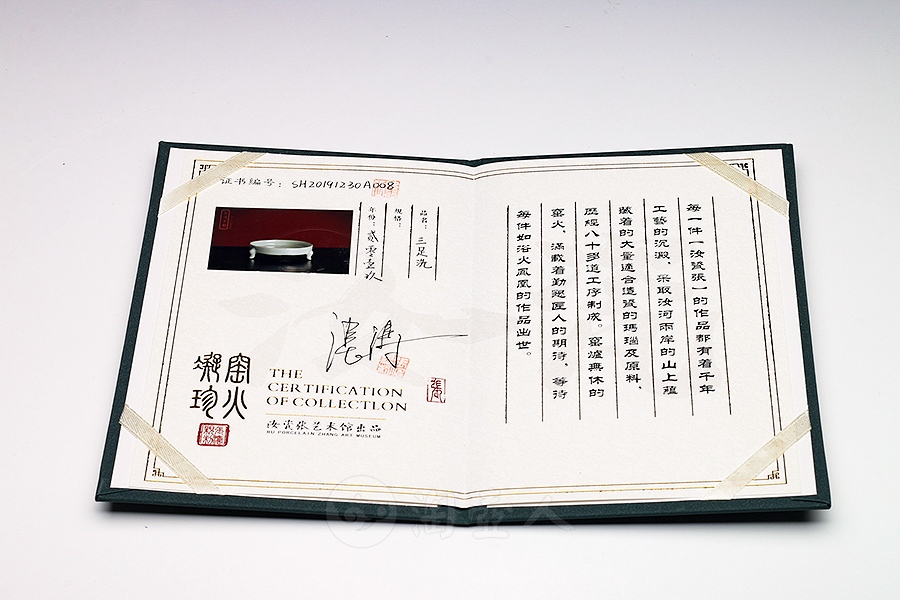 证书编号：SH20191230A008
品名：三足洗
规格：
年份：贰零壹玖
窑火
凝珍
THE
CERTIFICATION
OF COLLECTLON
汝瓷张艺术馆出品
RU PORCELAIN ZHANG ART MUSEUM
每一件一汝瓷張一的作品都有着千年
工藝的沉澱，采取汝河兩岸的山上蘊
藏着的大量適合造瓷的瑪瑙及原料，
歷經八十多道工序制成。窑爐無休的
窑火，滿載着勤懇匠人的期待，等待
每件如浴火鳳凰的作品出世。